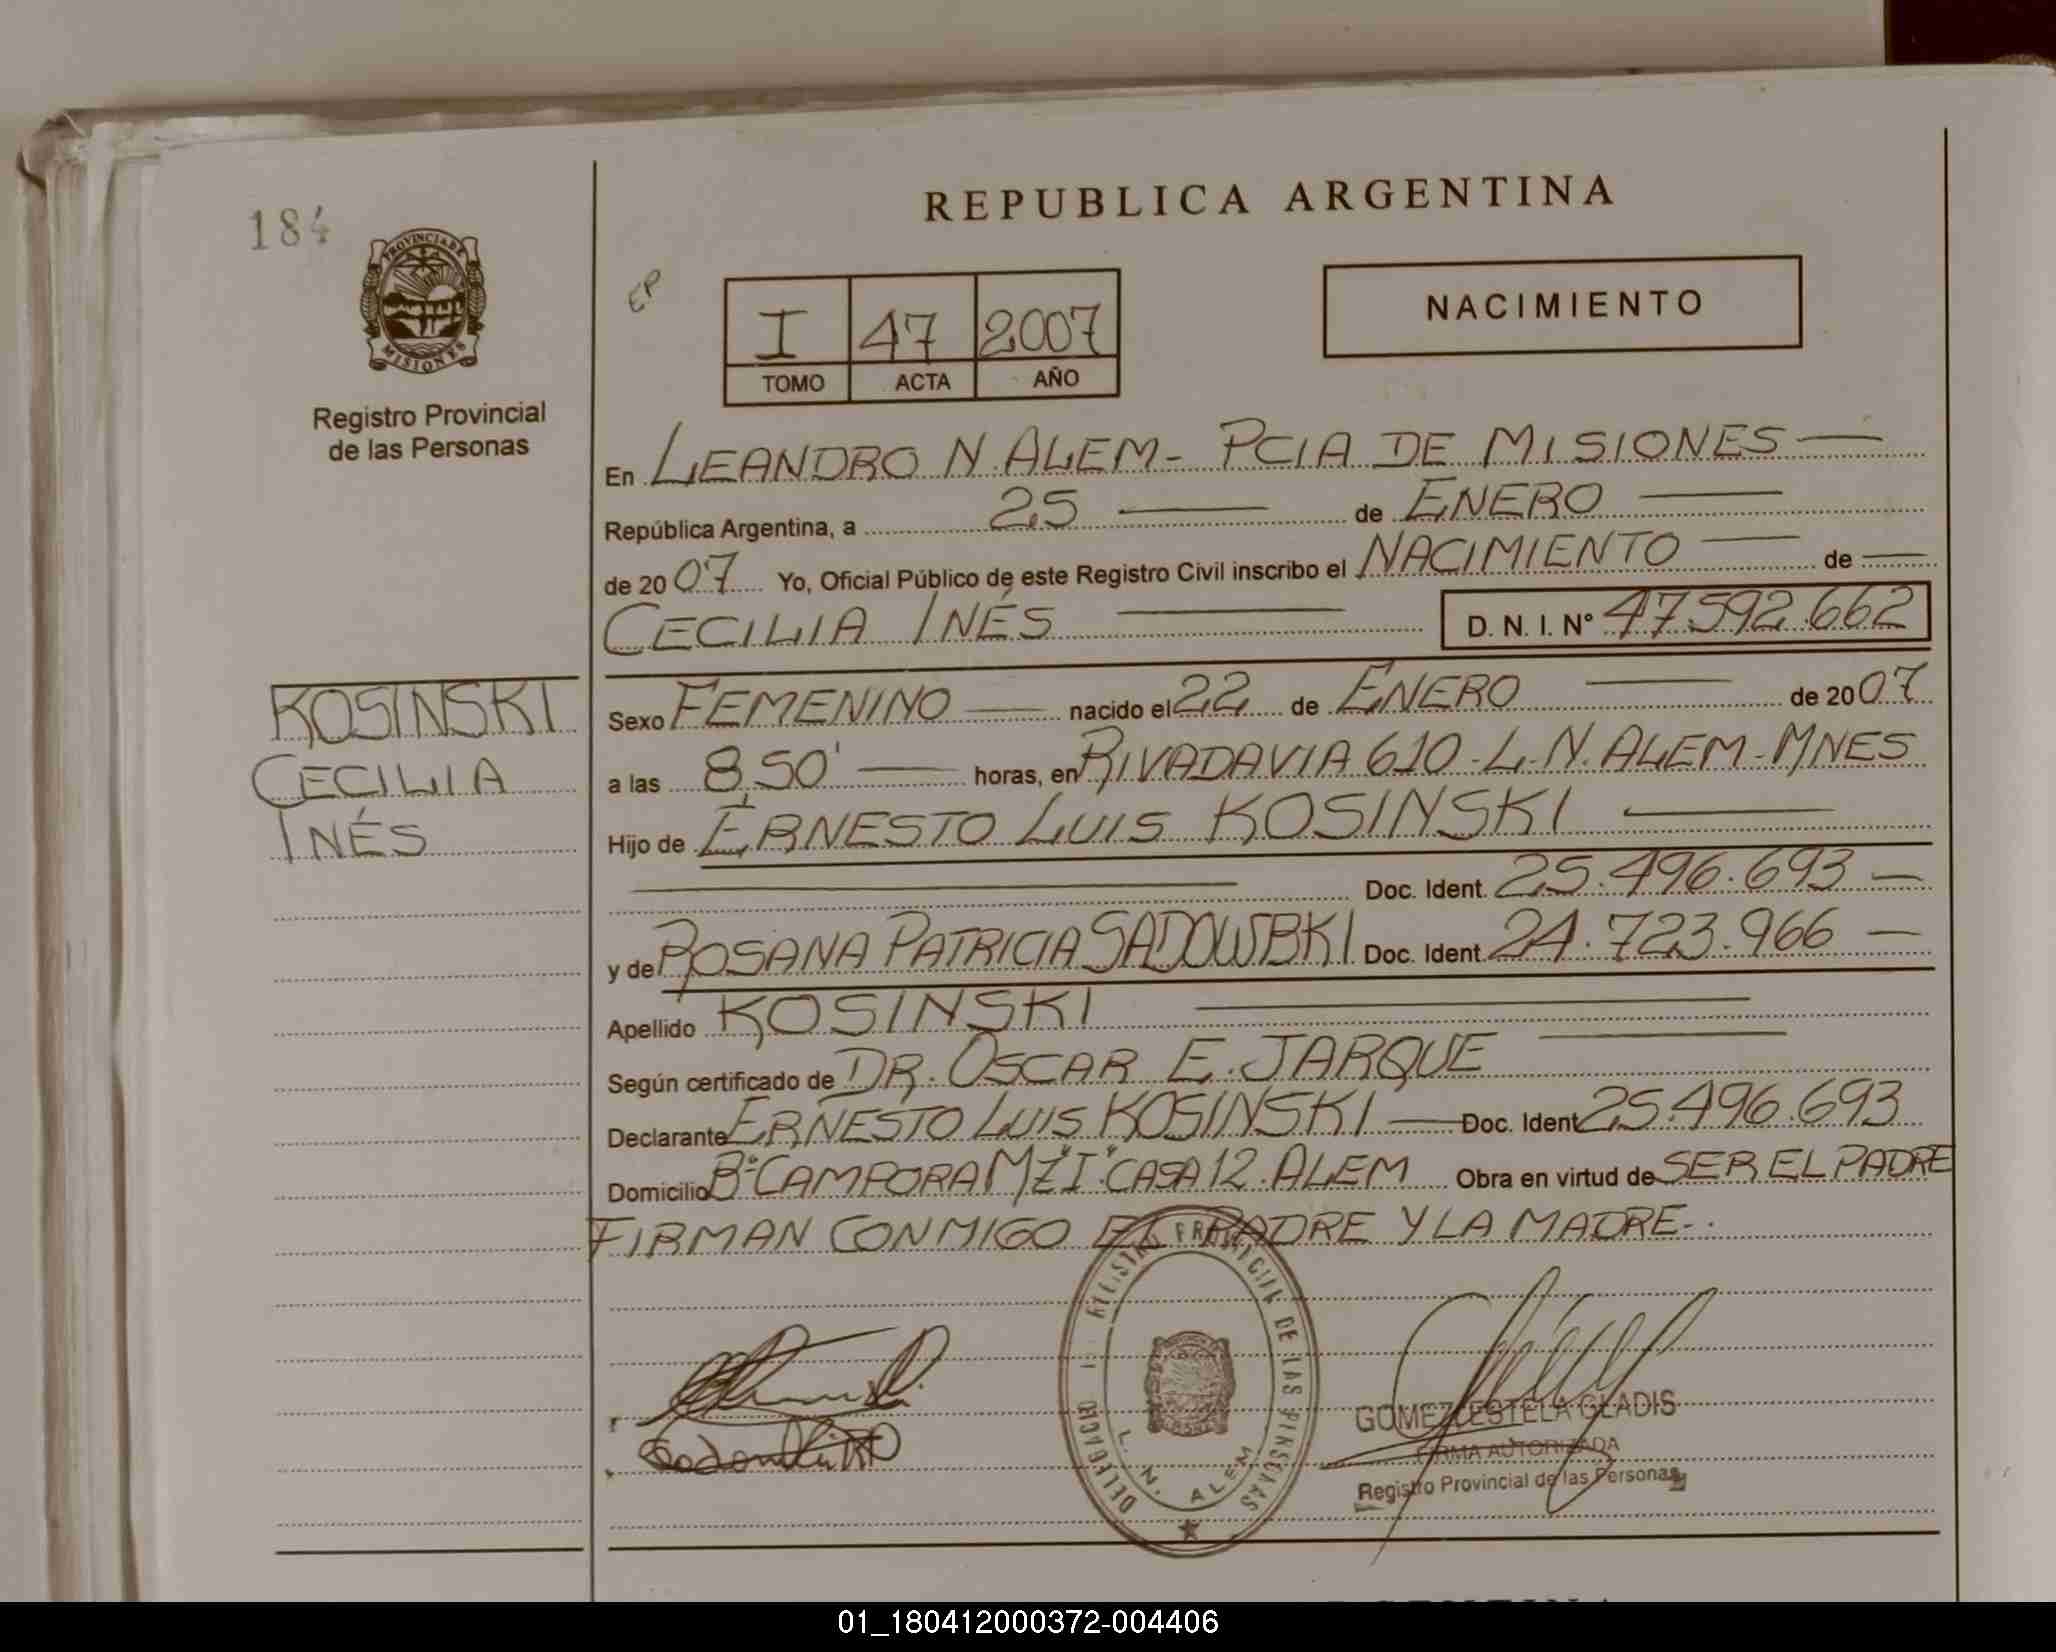 184
PROVINCIA DE
MISIONES
Registro Provincial
de las Personas
REPUBLICA ARGENTINA
EP
I 47 2007
TOMO ACTA AÑO
NACIMIENTO
En LEANDRO N. ALEM - PCIA DE MISIONES
República Argentina, a 25 de ENERO
de 2007 Yo, Oficial Público de este Registro Civil inscribo el NACIMIENTO de
CECILIA INÉS D. N. I. Nº 47.592.662
KOSINSKI
CECILIA
INÉS
Sexo FEMENINO nacido el 22 de ENERO de 2007
a las 8,50' horas, en RIVADAVIA 610 - L. N. ALEM - MNES
Hijo de ERNESTO LUIS KOSINSKI
Doc. Ident. 25.496.693
y de ROSANA PATRICIA Doc. Ident. 24.723.966
Apellido KOSINSKI
Según certificado de DR. OSCAR E. JARQUE
Declarante ERNESTO LUIS KOSINSKI Doc. Ident 25.496.693
Domicilio Bº CAMPORA MZ "I" CASA 12. ALEM Obra en virtud de SER EL PADRE
FIRMAN CONMIGO EL PADRE Y LA MADRE-.
REGISTRO PROVINCIAL DE LAS PERSONAS
L. N. ALEM
GOMEZ ESTELA GLADIS
FIRMA AUTORIZADA
Registro Provincial de las Personas
01_180412000372-004406